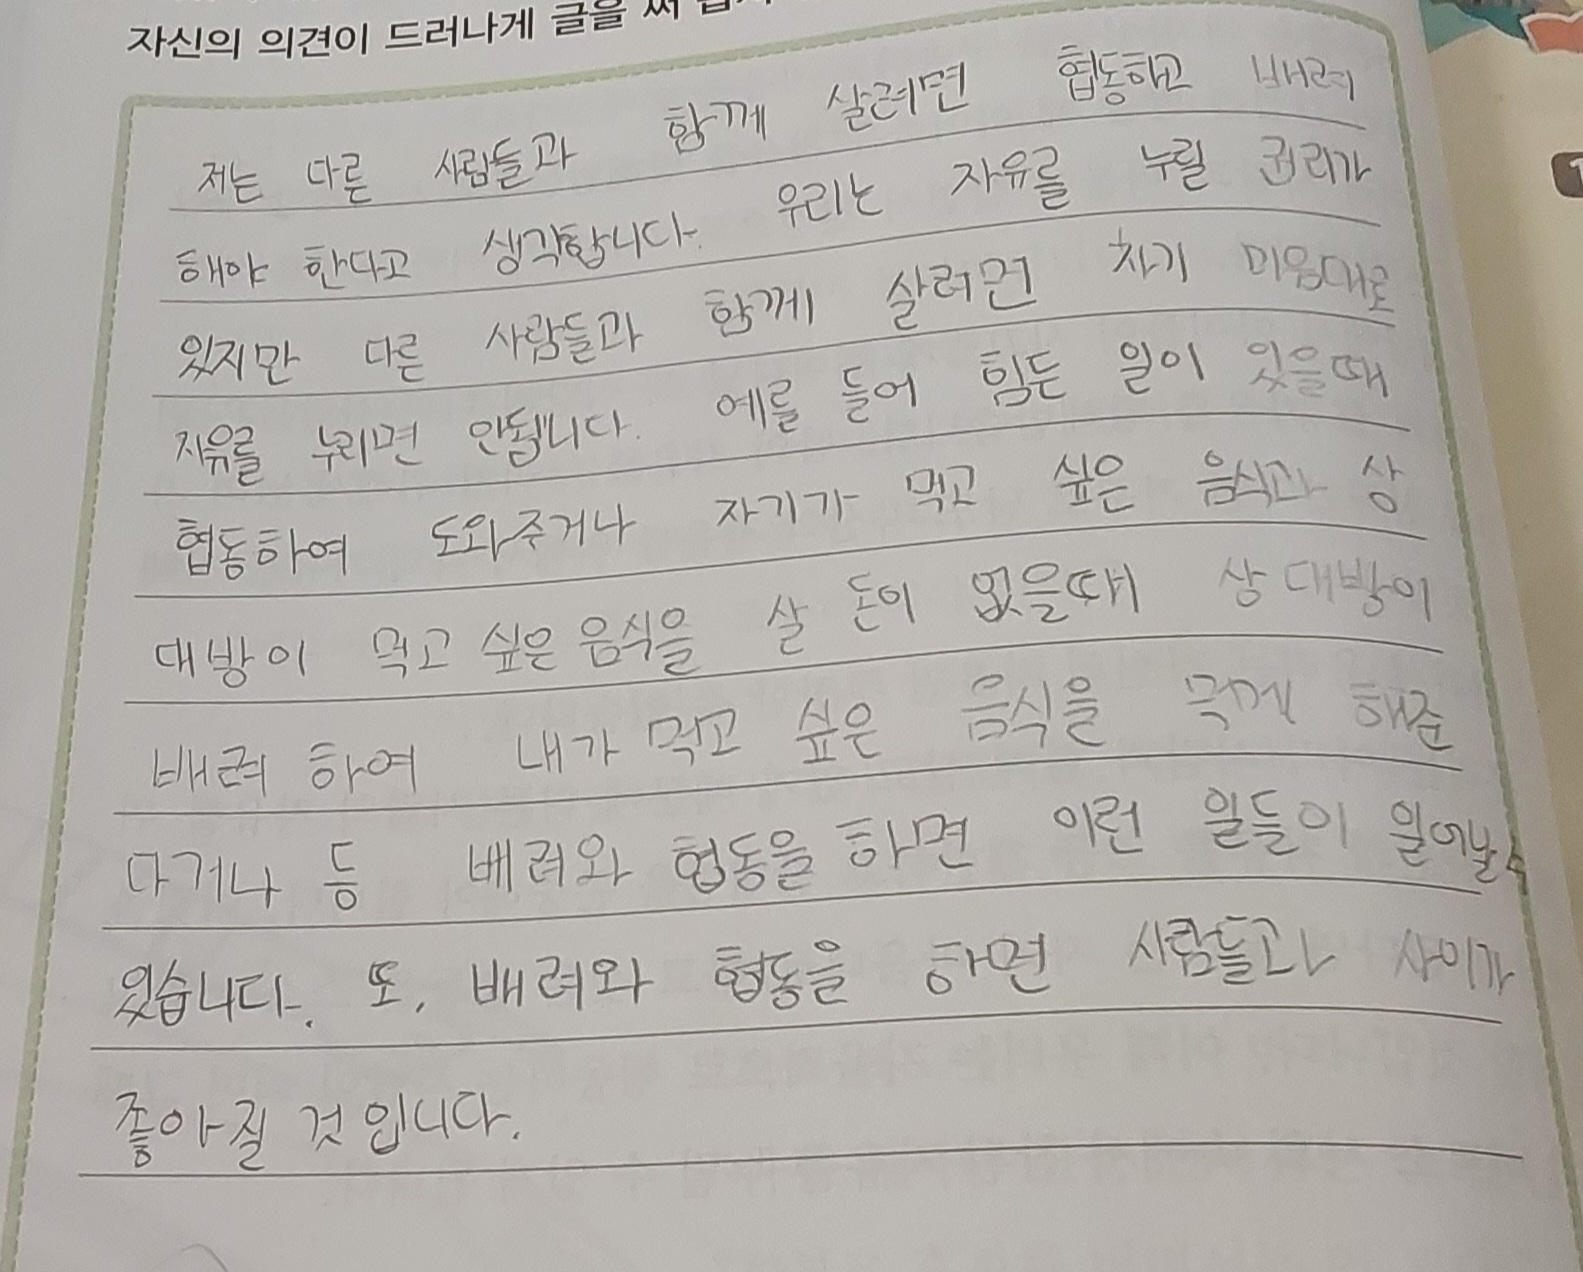 자신의 의견이 드러나게 글을 써
저는 다른 사람들과 함께 살려면 협동하고 배려
해야 한다고 생각합니다. 우리는 자유를 누릴 권리가
있지만 다른 사람들과 함께 살려면 자기 마음대로
자유를 누리면 안됩니다. 예를 들어 힘든 일이 있을때
협동하여 도와주거나 자기가 먹고 싶은 음식과 상
대방이 먹고 싶은 음식을 살 돈이 없을때 상대방이
배려 하여 내가 먹고 싶은 음식을 먹게 해준
다거나 등 배려와 협동을 하면 이런 일들이 일어날 수
있습니다. 또, 배려와 협동을 하면 사람들과 사이가
좋아질 것 입니다.